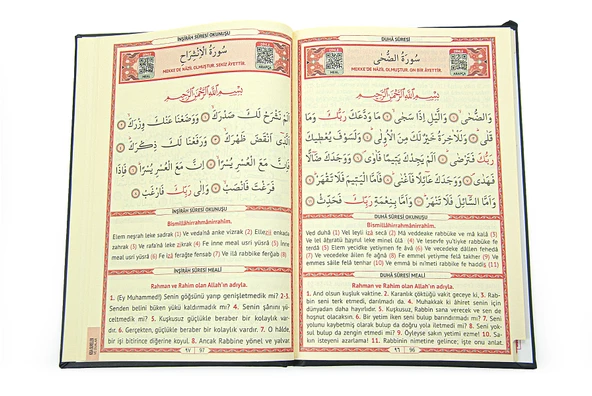 DUHÂ SÛRESİ
سُورَةُ الضُّحٰى
MEKKE'DE NÂZİL OLMUŞTUR. ON BİR ÂYETTİR.
MEAL
ARAPÇA
بِسْمِ اللّٰهِ الرَّحْمٰنِ الرَّحِيمِ
وَالضُّحٰىۙ ﴿١﴾ وَالَّيْلِ اِذَا سَجٰىۙ ﴿٢﴾ مَا وَدَّعَكَ رَبُّكَ وَمَا
قَلٰىۜ ﴿٣﴾ وَلَلْاٰخِرَةُ خَيْرٌ لَكَ مِنَ الْاُو۫لٰىۜ ﴿٤﴾ وَلَسَوْفَ يُعْطٖيكَ
رَبُّكَ فَتَرْضٰىۜ ﴿٥﴾ اَلَمْ يَجِدْكَ يَتٖيمًا فَاٰوٰىۖ ﴿٦﴾ وَوَجَدَكَ ضَٓالًّا
فَهَدٰىۖ ﴿٧﴾ وَوَجَدَكَ عَٓائِلًا فَاَغْنٰىۜ ﴿٨﴾ فَاَمَّا الْيَتٖيمَ فَلَا تَقْهَرْۜ ﴿٩﴾
وَاَمَّا السَّٓائِلَ فَلَا تَنْهَرْۜ ﴿١٠﴾ وَاَمَّا بِنِعْمَةِ رَبِّكَ فَحَدِّثْ ﴿١١﴾
DUHÂ SÛRESİ OKUNUŞU
Bismillâhirrahmânirrahîm.
Ved duhâ (1) Vel leyli izâ secâ (2) Mâ veddeake rabbüke ve mâ kalâ (3)
Ve lel âhıratü hayrul leke minel ûlâ (4) Ve lesevfe yu'tiyke rabbüke fe
terdâ (5) Elem yecidke yetiymen fe âvâ (6) Ve vecedeke dâllen fehedâ
(7) Ve vecedeke âilen fe ağnâ (8) Fe emmel yetiyme felâ takher (9) Ve
emmes sâile felâ tenher (10) Ve emmâ bi ni'meti rabbike fe haddis (11)
DUHÂ SÛRESİ MEALİ
Rahman ve Rahim olan Allah'ın adıyla.
1. And olsun kuşluk vaktine. 2. Karanlık çöktüğü vakit geceye ki, 3. Rab-
bin seni terk etmedi, darılmadı da. 4. Muhakkak ki âhiret senin için
dünyadan daha hayırlıdır. 5. Kuşkusuz, Rabbin sana verecek ve sen de
hoşnut olacaksın. 6. Bir yetim iken seni bulup barındırmadı mı? 7. Seni
yolunu kaybetmiş olarak bulup da doğru yola iletmedi mi? 8. Seni yok-
sul bulup da zengin etmedi mi? 9. Öyleyse sakın yetimi ezme! 10. Sa-
kın isteyeni azarlama! 11. Rabbinin nimetine gelince; işte onu anlat.
٩٦ 96
İNŞİRÂH SÛRESİ OKUNUŞU
سُورَةُ الْاِنْشِرَاحِ
MEKKE'DE NÂZİL OLMUŞTUR. SEKİZ ÂYETTİR.
MEAL
ARAPÇA
بِسْمِ اللّٰهِ الرَّحْمٰنِ الرَّحِيمِ
اَلَمْ نَشْرَحْ لَكَ صَدْرَكَۙ ﴿١﴾ وَوَضَعْنَا عَنْكَ وِزْرَكَۙ ﴿٢﴾
اَلَّذٖٓي اَنْقَضَ ظَهْرَكَۙ ﴿٣﴾ وَرَفَعْنَا لَكَ ذِكْرَكَۜ ﴿٤﴾
فَاِنَّ مَعَ الْعُسْرِ يُسْرًاۙ ﴿٥﴾ اِنَّ مَعَ الْعُسْرِ يُسْرًاۜ ﴿٦﴾ فَاِذَا
فَرَغْتَ فَانْصَبْۙ ﴿٧﴾ وَاِلٰى رَبِّكَ فَارْغَبْ ﴿٨﴾
İNŞİRÂH SÛRESİ OKUNUŞU
Bismillâhirrahmânirrahîm.
Elem neşrah leke sadrak (1) Ve veda'nâ anke vizrak (2) Ellezî enkada
zahrak (3) Ve rafa'nâ leke zikrak (4) Fe inne meal usri yüsrâ (5) İnne
meal usri yüsrâ (6) Fe izâ ferağte fensab (7) Ve ilâ rabbike ferğab (8)
İNŞİRÂH SÛRESİ MEALİ
Rahman ve Rahim olan Allah'ın adıyla.
1. (Ey Muhammed!) Senin göğsünü yarıp genişletmedik mi? 2-3.
Senden belini büken yükü kaldırmadık mı? 4. Senin şânını yü-
celtmedik mi? 5. Kuşkusuz güçlükle beraber bir kolaylık var-
dır. 6. Gerçekten, güçlükle beraber bir kolaylık vardır. 7. O hâlde,
bir işi bitirince diğerine koyul. 8. Ancak Rabbine yönel ve yalvar.
٩٧ 97